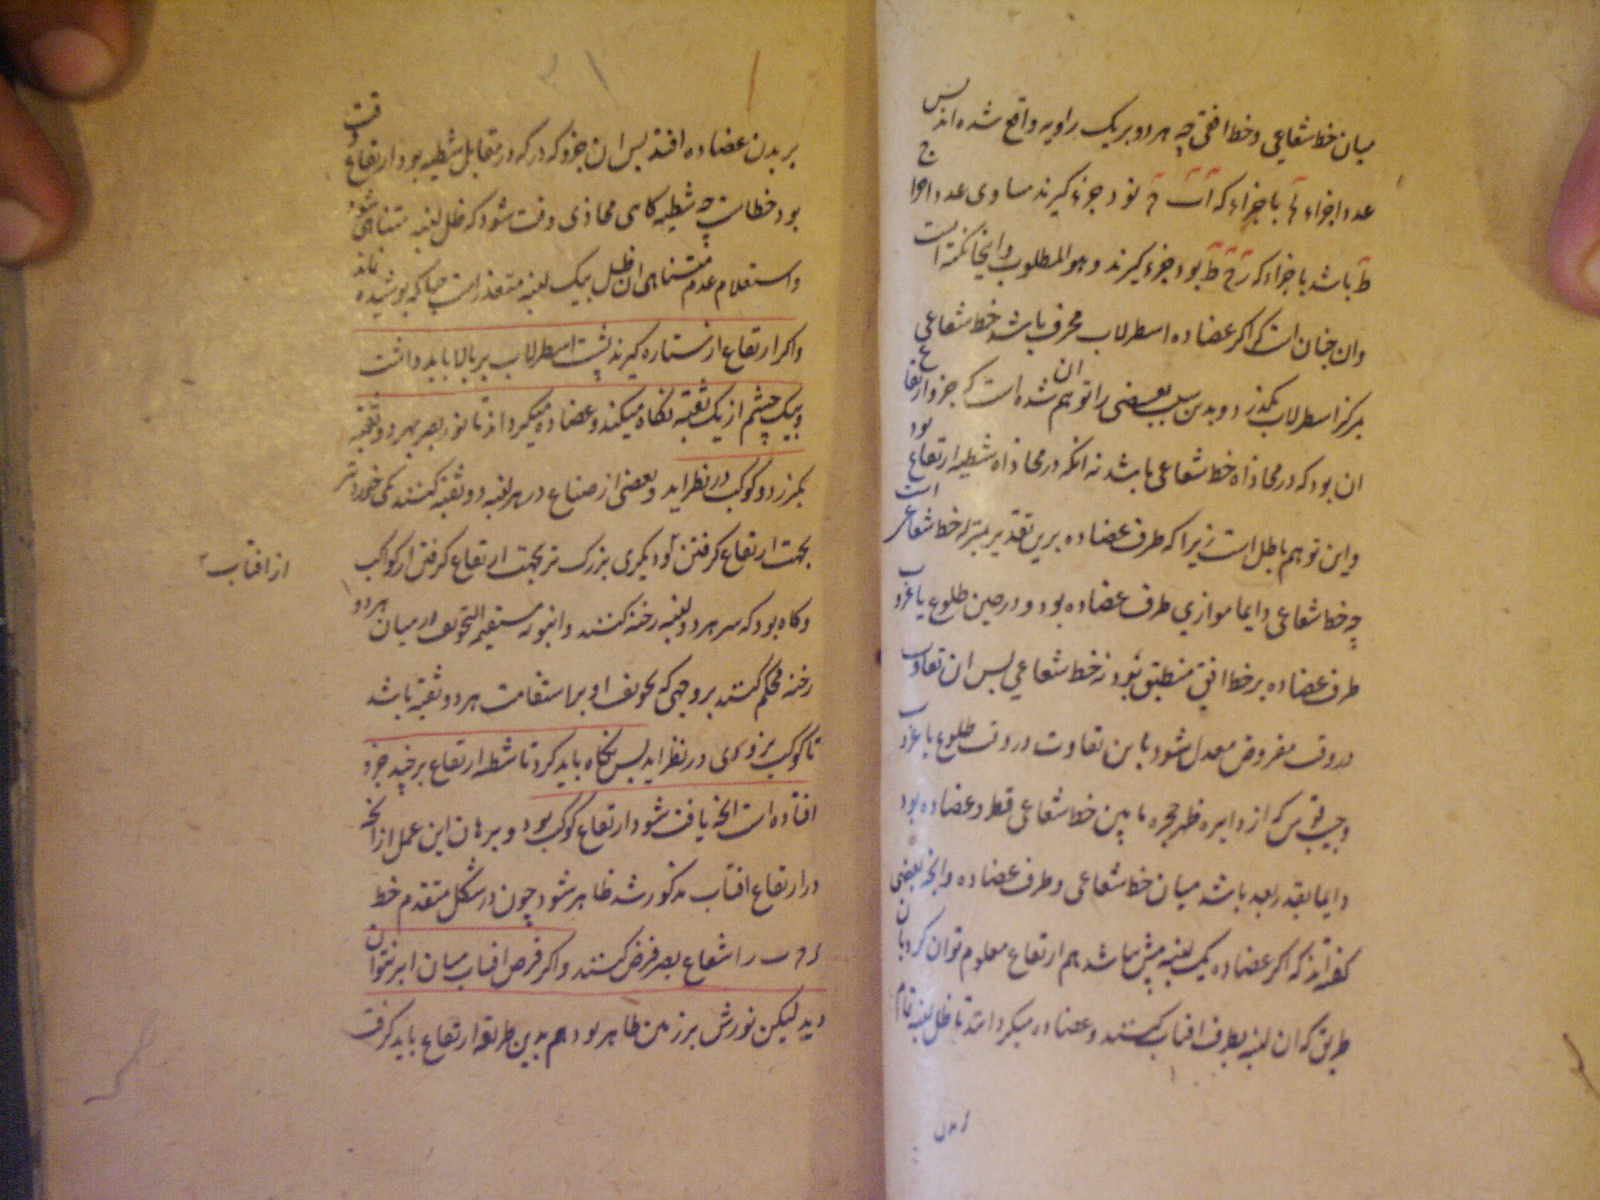 میان خط شعاعی و خط افقی چه هر دو بر یک زاویه واقع شده اند پس
عدد اجزاء با جزاء که نود جزء گیرند مساوی عدد اجزا
باشد با جزاء که بود جزء گیرند و هو المطلوب و اینجا نکته است
و ان چنان است که اکر عضاده اسطرلاب محرف باشد خط شعاعی
بمرکز اسطرلاب نکذرد و بدین سبب بعضی را توهم شده است که جزو ارتفاع
ان بود که در محاذاه خط شعاعی باشد نه انکه در محاذاه شظیه ارتفاع بود
و این توهم باطل است زیرا که طرف عضاده برین تقدیر بمنزله خط شعاعی است
چه خط شعاعی دایما موازی طرف عضاده بود و در حین طلوع یا غروب
طرف عضاده بر خط افق منطبق بود نه خط شعاعی پس ان تفاوت
در وقت مفروض معدل شود باین تفاوت در وقت طلوع یا غروب
و جیب قوس که از دایره ظهر حجره ما بین خط شعاعی و طرف عضاده بود
دایما بقدر بعد باشد میان خط شعاعی و طرف عضاده و انچه بعضی
کفته اند که اکر عضاده یک لبنه بیش نباشد هم ارتفاع معلوم توان کرد بان
طریق که ان لبنه بطرف افتاب کنند و عضاده میکردانند تا ظل لبنه تمام
بر بدن عضاده افتد پس ان جزو که در مقابل شظیه بود ارتفاع وقت
بود خطاست چه شظیه کاهی محاذی وقت شود که ظل لبنه متناهی شود
و استعلام عدم متناهی ان ظل بیک لبنه متعذر است چنانکه پوشیده نماند
و اکر ارتفاع از ستاره گیرند پشت اسطرلاب بر بالا باید داشت
و بیک چشم از یک ثقبه نکاه میکند و عضاده میکرداند تا نور بصر بهر دو ثقبه
بکذرد و کوکب در نظر اید و بعضی از صناع در هر لبنه دو ثقبه کنند یکی خوردتر
بجهت ارتفاع کرفتن و دیکری بزرک تر بجهت ارتفاع کرفتن از کواکب
از افتاب
و کاه بود که سر هر دو لبنه رخنه کنند و انبوبه مستقیم التجویف در میان هر دو
رخنه محکم کنند بر وجهی که تجویف او بر استقامت هر دو ثقبه باشد
تا کوکب بزودی در نظر اید پس نکاه باید کرد تا شظیه ارتفاع بر چند جزو
افتاده است انچه یافت شود ارتفاع کوکب بود و برهان این عمل از انچه
در ارتفاع افتاب مذکور شد ظاهر شود چون در شکل متقدم خط
را شعاع بصر فرض کنند و اکر قرص افتاب میان ابر بتوان
دید لیکن نورش بر زمین ظاهر بود هم بدین طریق ارتفاع باید کرفت
بر بدن